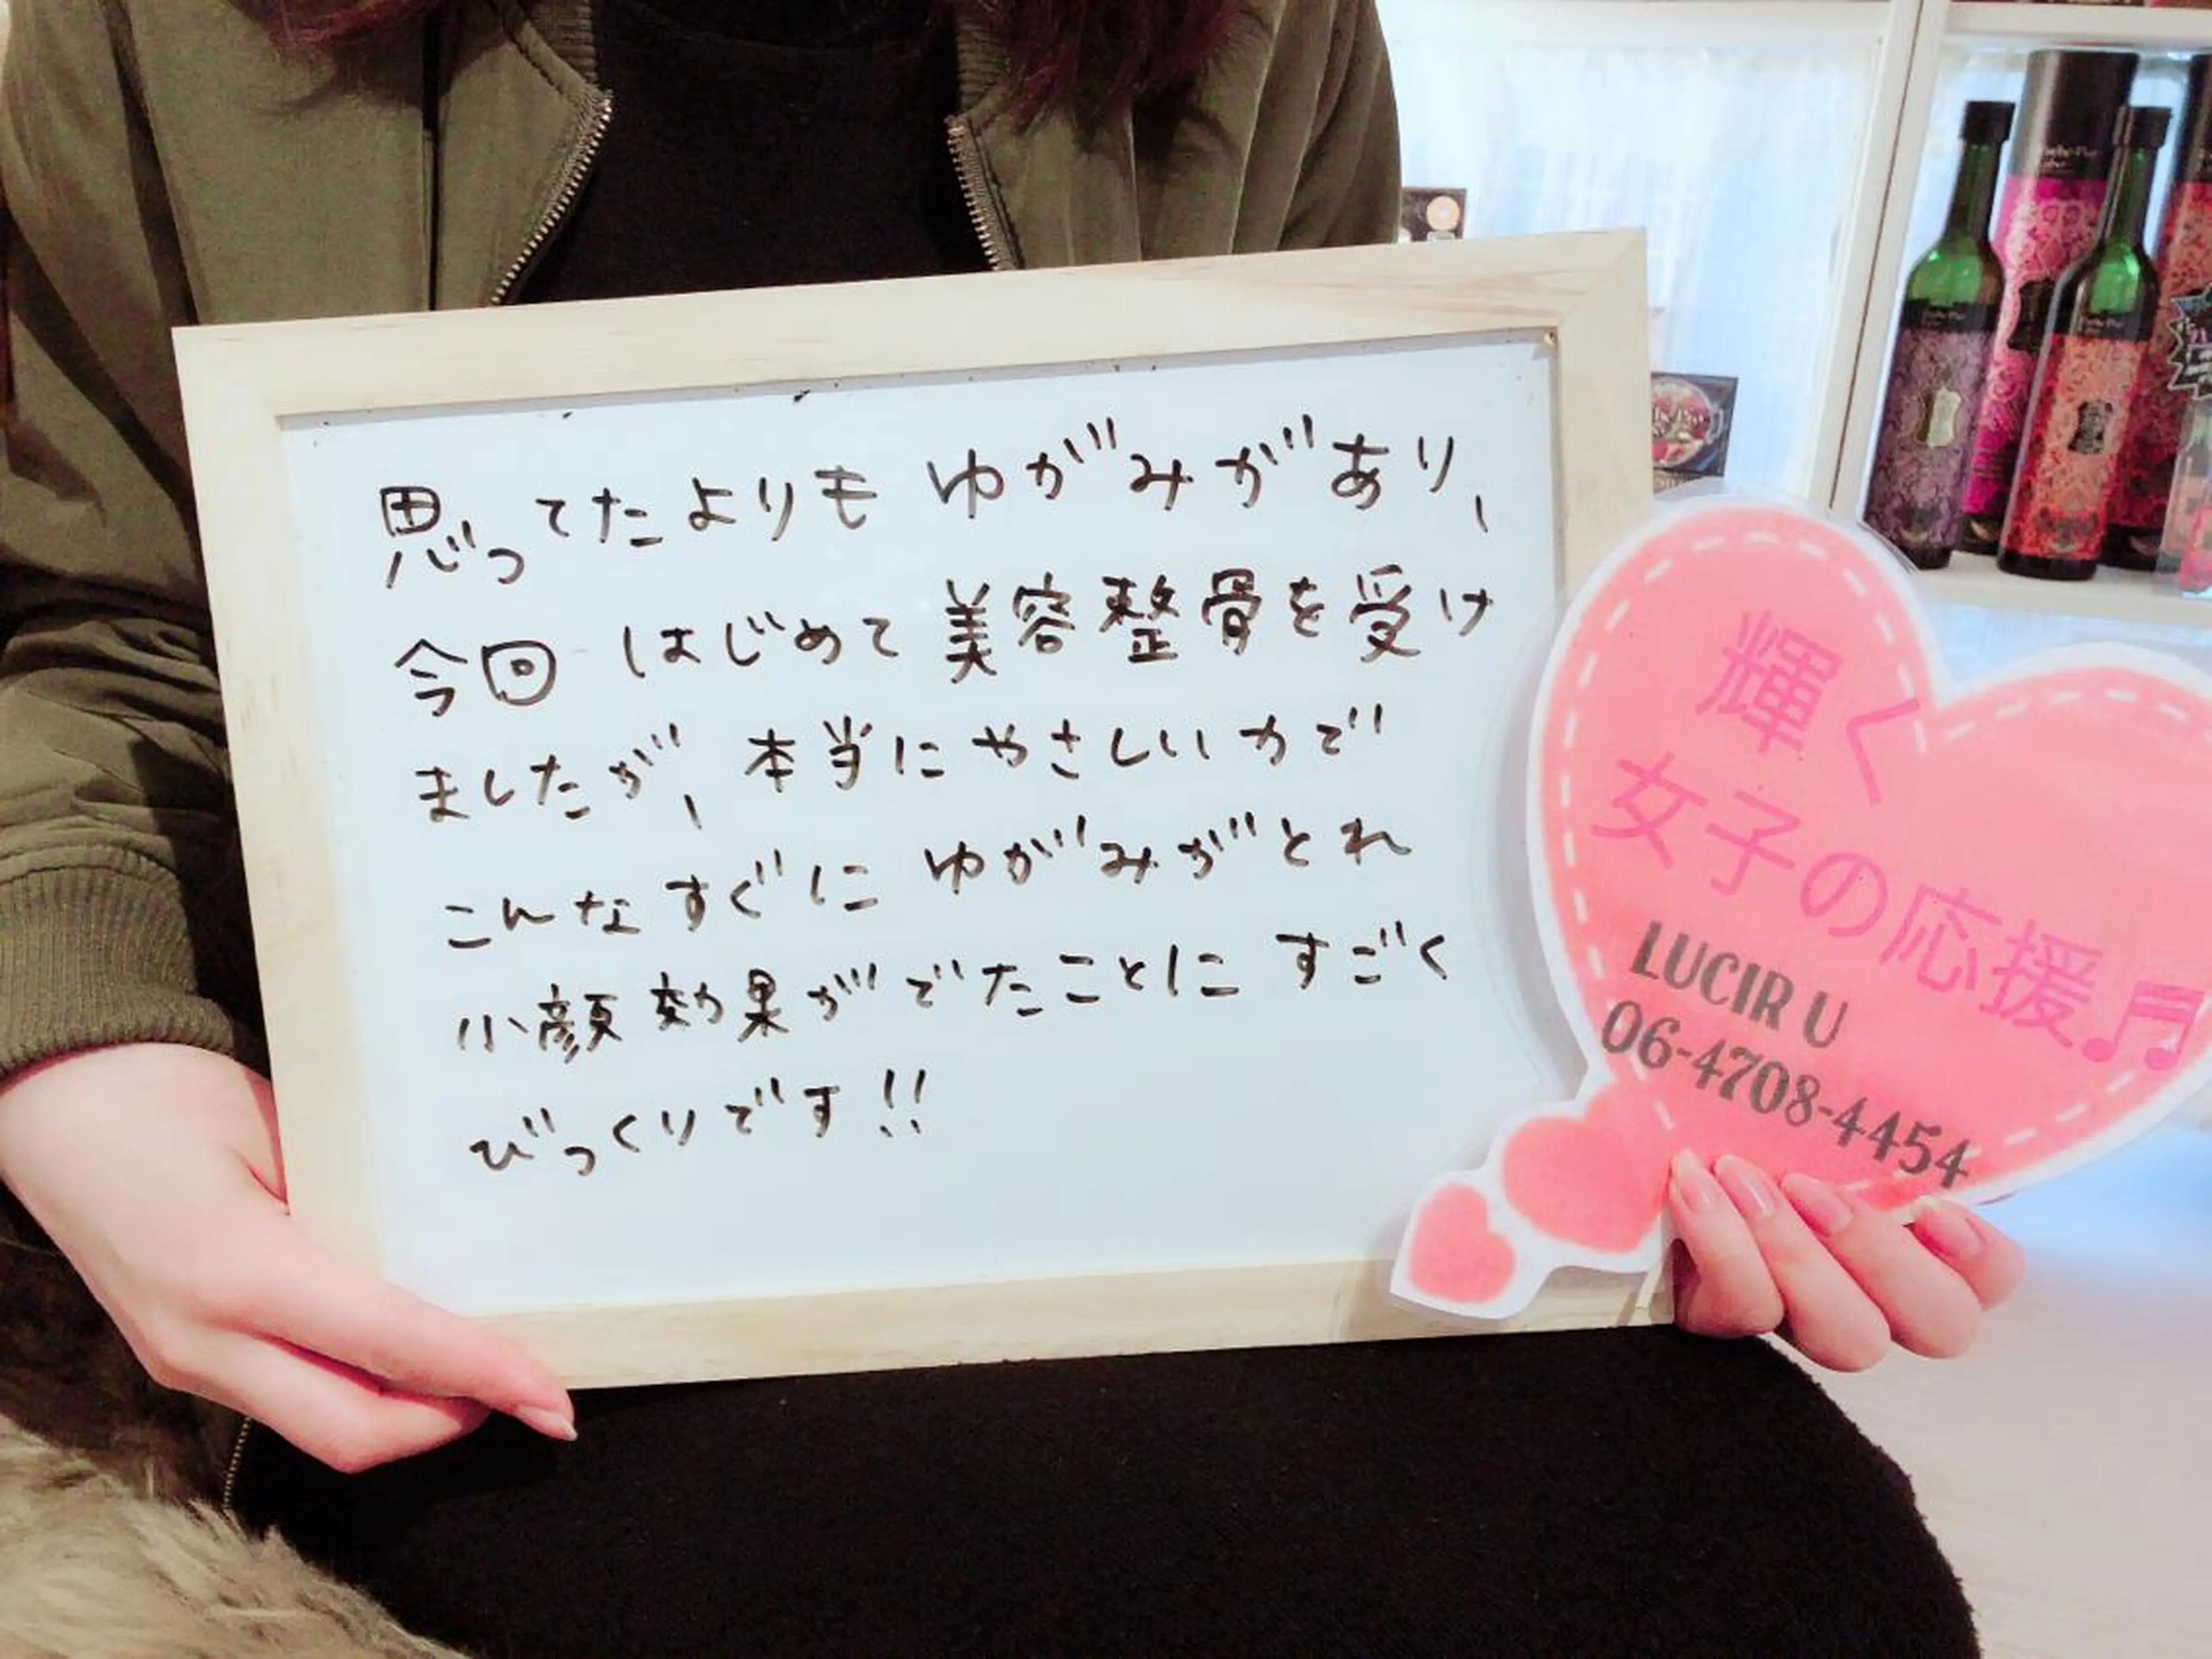 思ってたよりも ゆがみがあり、
今回 はじめて 美容整骨を受け
ましたが、本当に やさしい力で
こんな すぐに ゆがみがとれ
小顔効果がでたことに すごく
びっくりです!!
輝く
女子の応援♬
LUCIR U
06-4708-4454